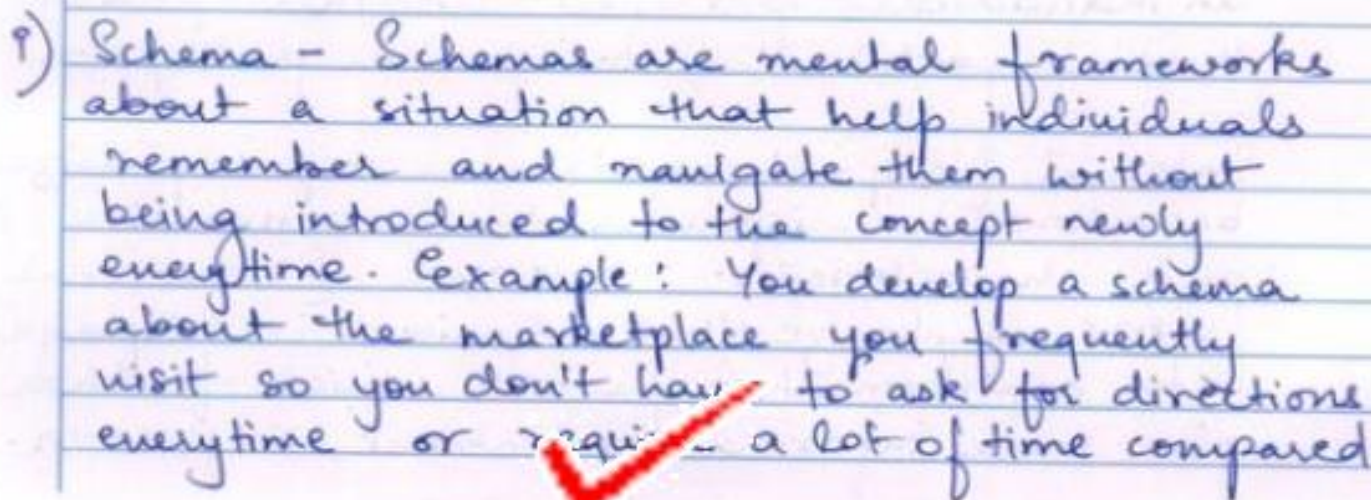 i) Schema - Schemas are mental frameworks
about a situation that help individuals
remember and navigate them without
being introduced to the concept newly
everytime. Example: You develop a schema
about the marketplace you frequently
visit so you don't have to ask for directions
everytime or require a lot of time compared